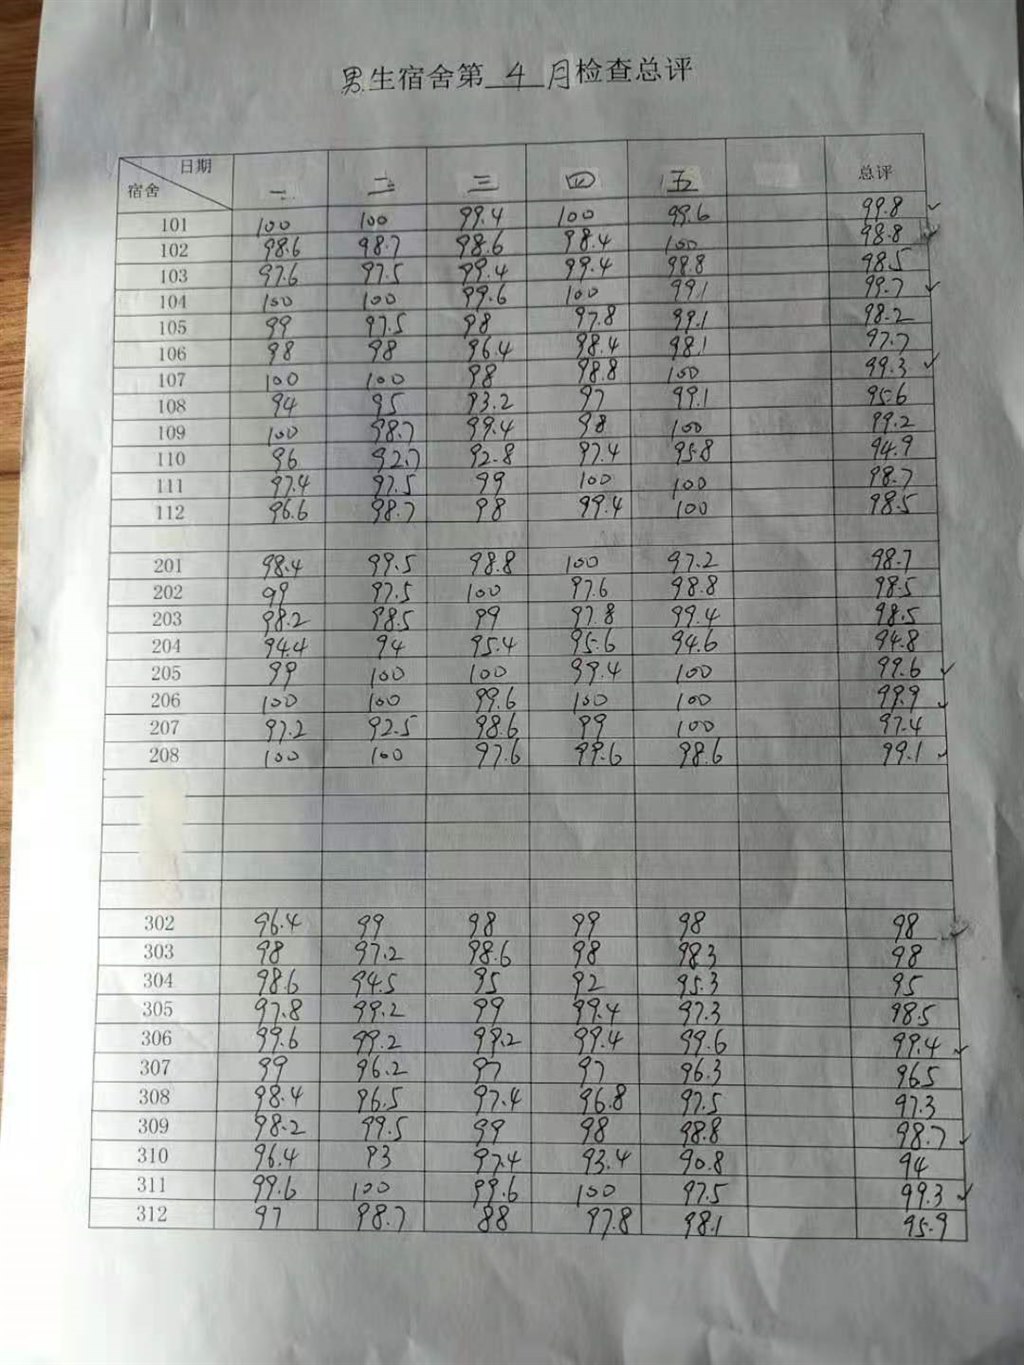 男生宿舍第 4 月检查总评
日期 宿舍 一 二 三 四 五 总评
101 100 100 99.4 100 99.6 99.8 ✓
102 98.6 98.7 98.6 98.4 100 98.8
103 97.6 97.5 99.4 99.4 98.8 98.5
104 100 100 99.6 100 99.1 99.7 ✓
105 99 97.5 98 97.8 99.1 98.2
106 98 98 96.4 98.4 98.1 97.7
107 100 100 98 98.8 100 99.3 ✓
108 94 95 93.2 97 99.1 95.6
109 100 98.7 99.4 98 100 99.2
110 96 92.7 92.8 97.4 95.8 94.9
111 97.4 97.5 99 100 100 98.7
112 96.6 98.7 98 99.4 100 98.5
201 98.4 99.5 98.8 100 97.2 98.7
202 99 97.5 100 97.6 98.8 98.5
203 98.2 98.5 99 97.8 99.4 98.5
204 94.4 94 95.4 95.6 94.6 94.8
205 99 100 100 99.4 100 99.6 ✓
206 100 100 99.6 100 100 99.9 ✓
207 97.2 92.5 98.6 99 100 97.4
208 100 100 97.6 99.6 98.6 99.1 ✓
302 96.4 99 98 99 98 98
303 98 97.2 98.6 98 98.3 98
304 98.6 94.5 95 92 95.3 95
305 97.8 99.2 99 99.4 97.3 98.5
306 99.6 99.2 99.2 99.4 99.6 99.4 ✓
307 99 96.2 97 97 96.3 96.5
308 98.4 96.5 97.4 96.8 97.5 97.3
309 98.2 99.5 99 98 98.8 98.7 ✓
310 96.4 93 97.4 93.4 90.8 94
311 99.6 100 99.6 100 97.5 99.3 ✓
312 97 98.7 88 97.8 98.1 95.9